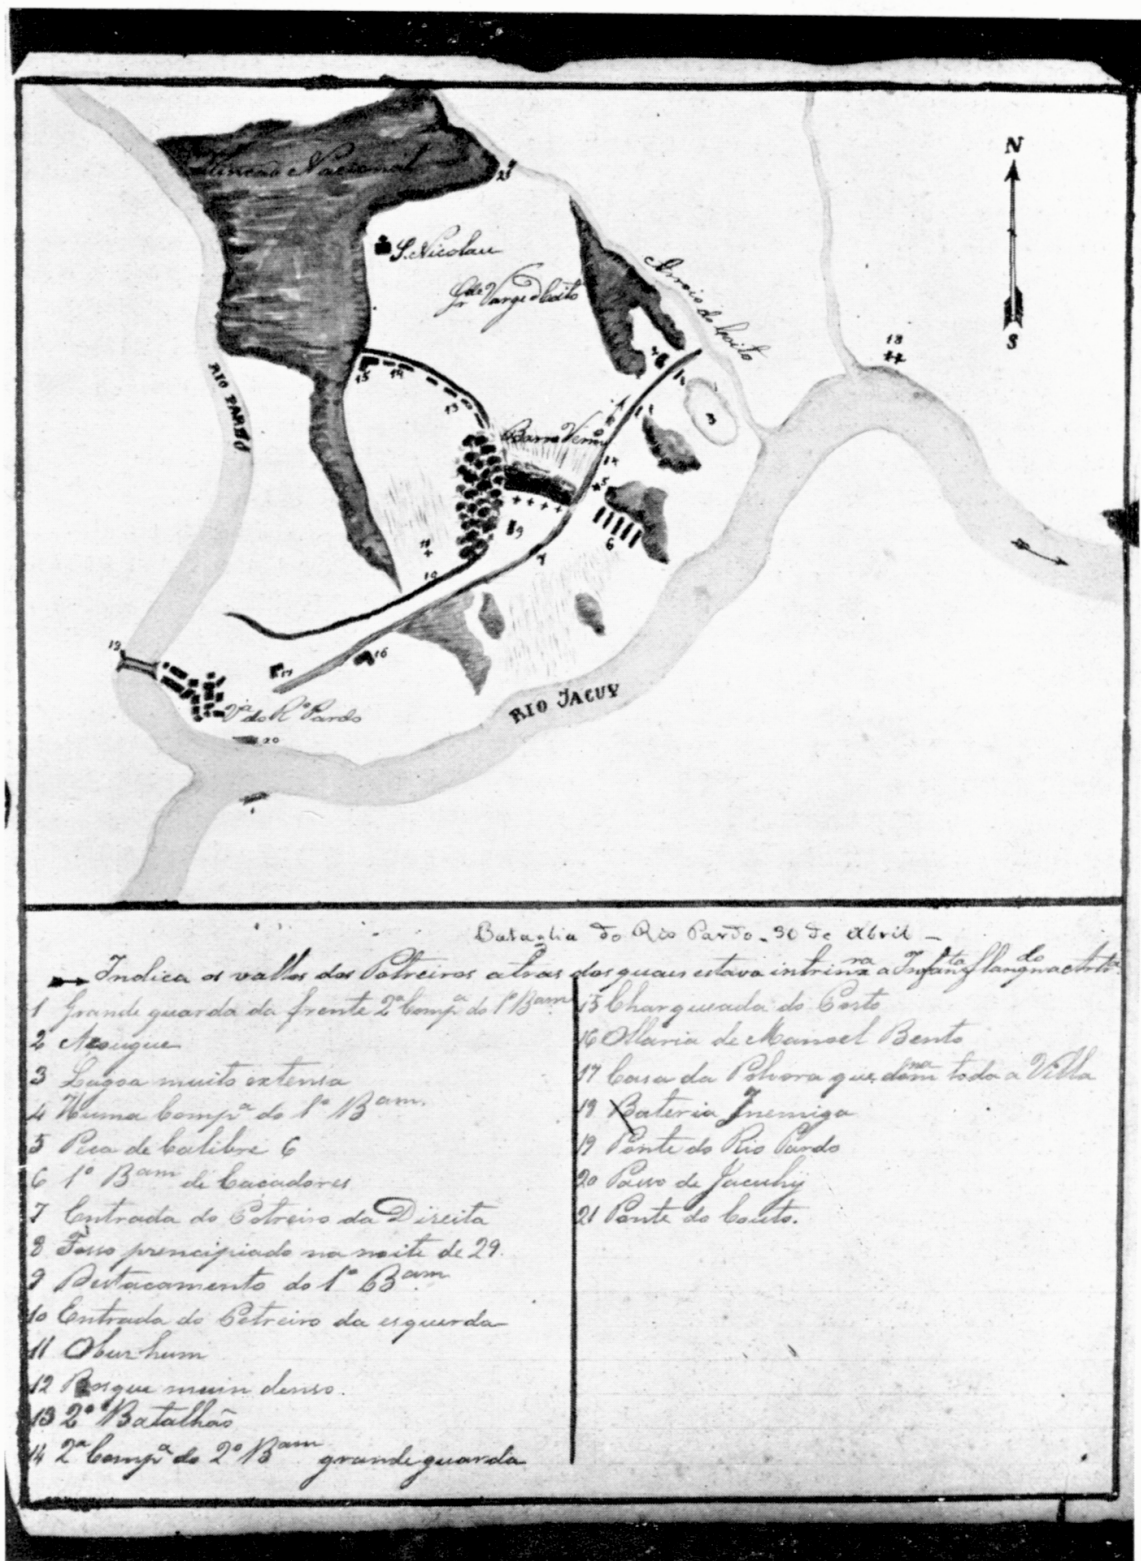 N
Rincão Nacional
21
S. Nicolau
Varge do Coito
Arroio do Coito
S
18
RIO PARDO
15
14
13
3
Barro Verm.º
14
5
9
6
11
10
7
19
17
16
V.ª do R.º Pardo
RIO JACUY
20
Bataglia do Rio Pardo - 30 de Abril -
Indica os vallos dos Potreiros atras dos quais estava intrinx.ra a Infan.ta
1 Grande guarda da frente 2.ª Comp.ª do 1º B.am
2 Asougue
3 Lagoa muito extensa
4 Huma Comp.ª do 1º B.am.
5 Pesa de Calibre 6
6 1º B.am de Casadores
7 Entrada do Potreiro da Direita
8 Fosso prencipiado na noite de 29.
9 Destacamento do 1º B.am.
10 Entrada do Potreiro da esquerda
11 Obuz hum
12 Bosque muin denso.
13 2º Batalhão
14 2.ª Comp.ª do 2º B.am grande guarda
15 Charqueada do Costo
16 Olaria de Manoel Bento
17 Casa da Polvora que dom.na toda a Villa
18 Bateria Inemiga
19 Ponte do Rio Pardo
20 Passo de Jacuhy
21 Ponte do Couto.